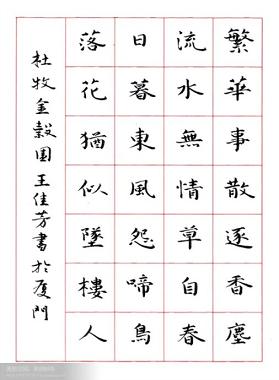 繁華事散逐香塵
流水無情草自春
日暮東風怨啼鳥
落花猶似墜樓人
杜牧金榖園王佳芳書於廈門